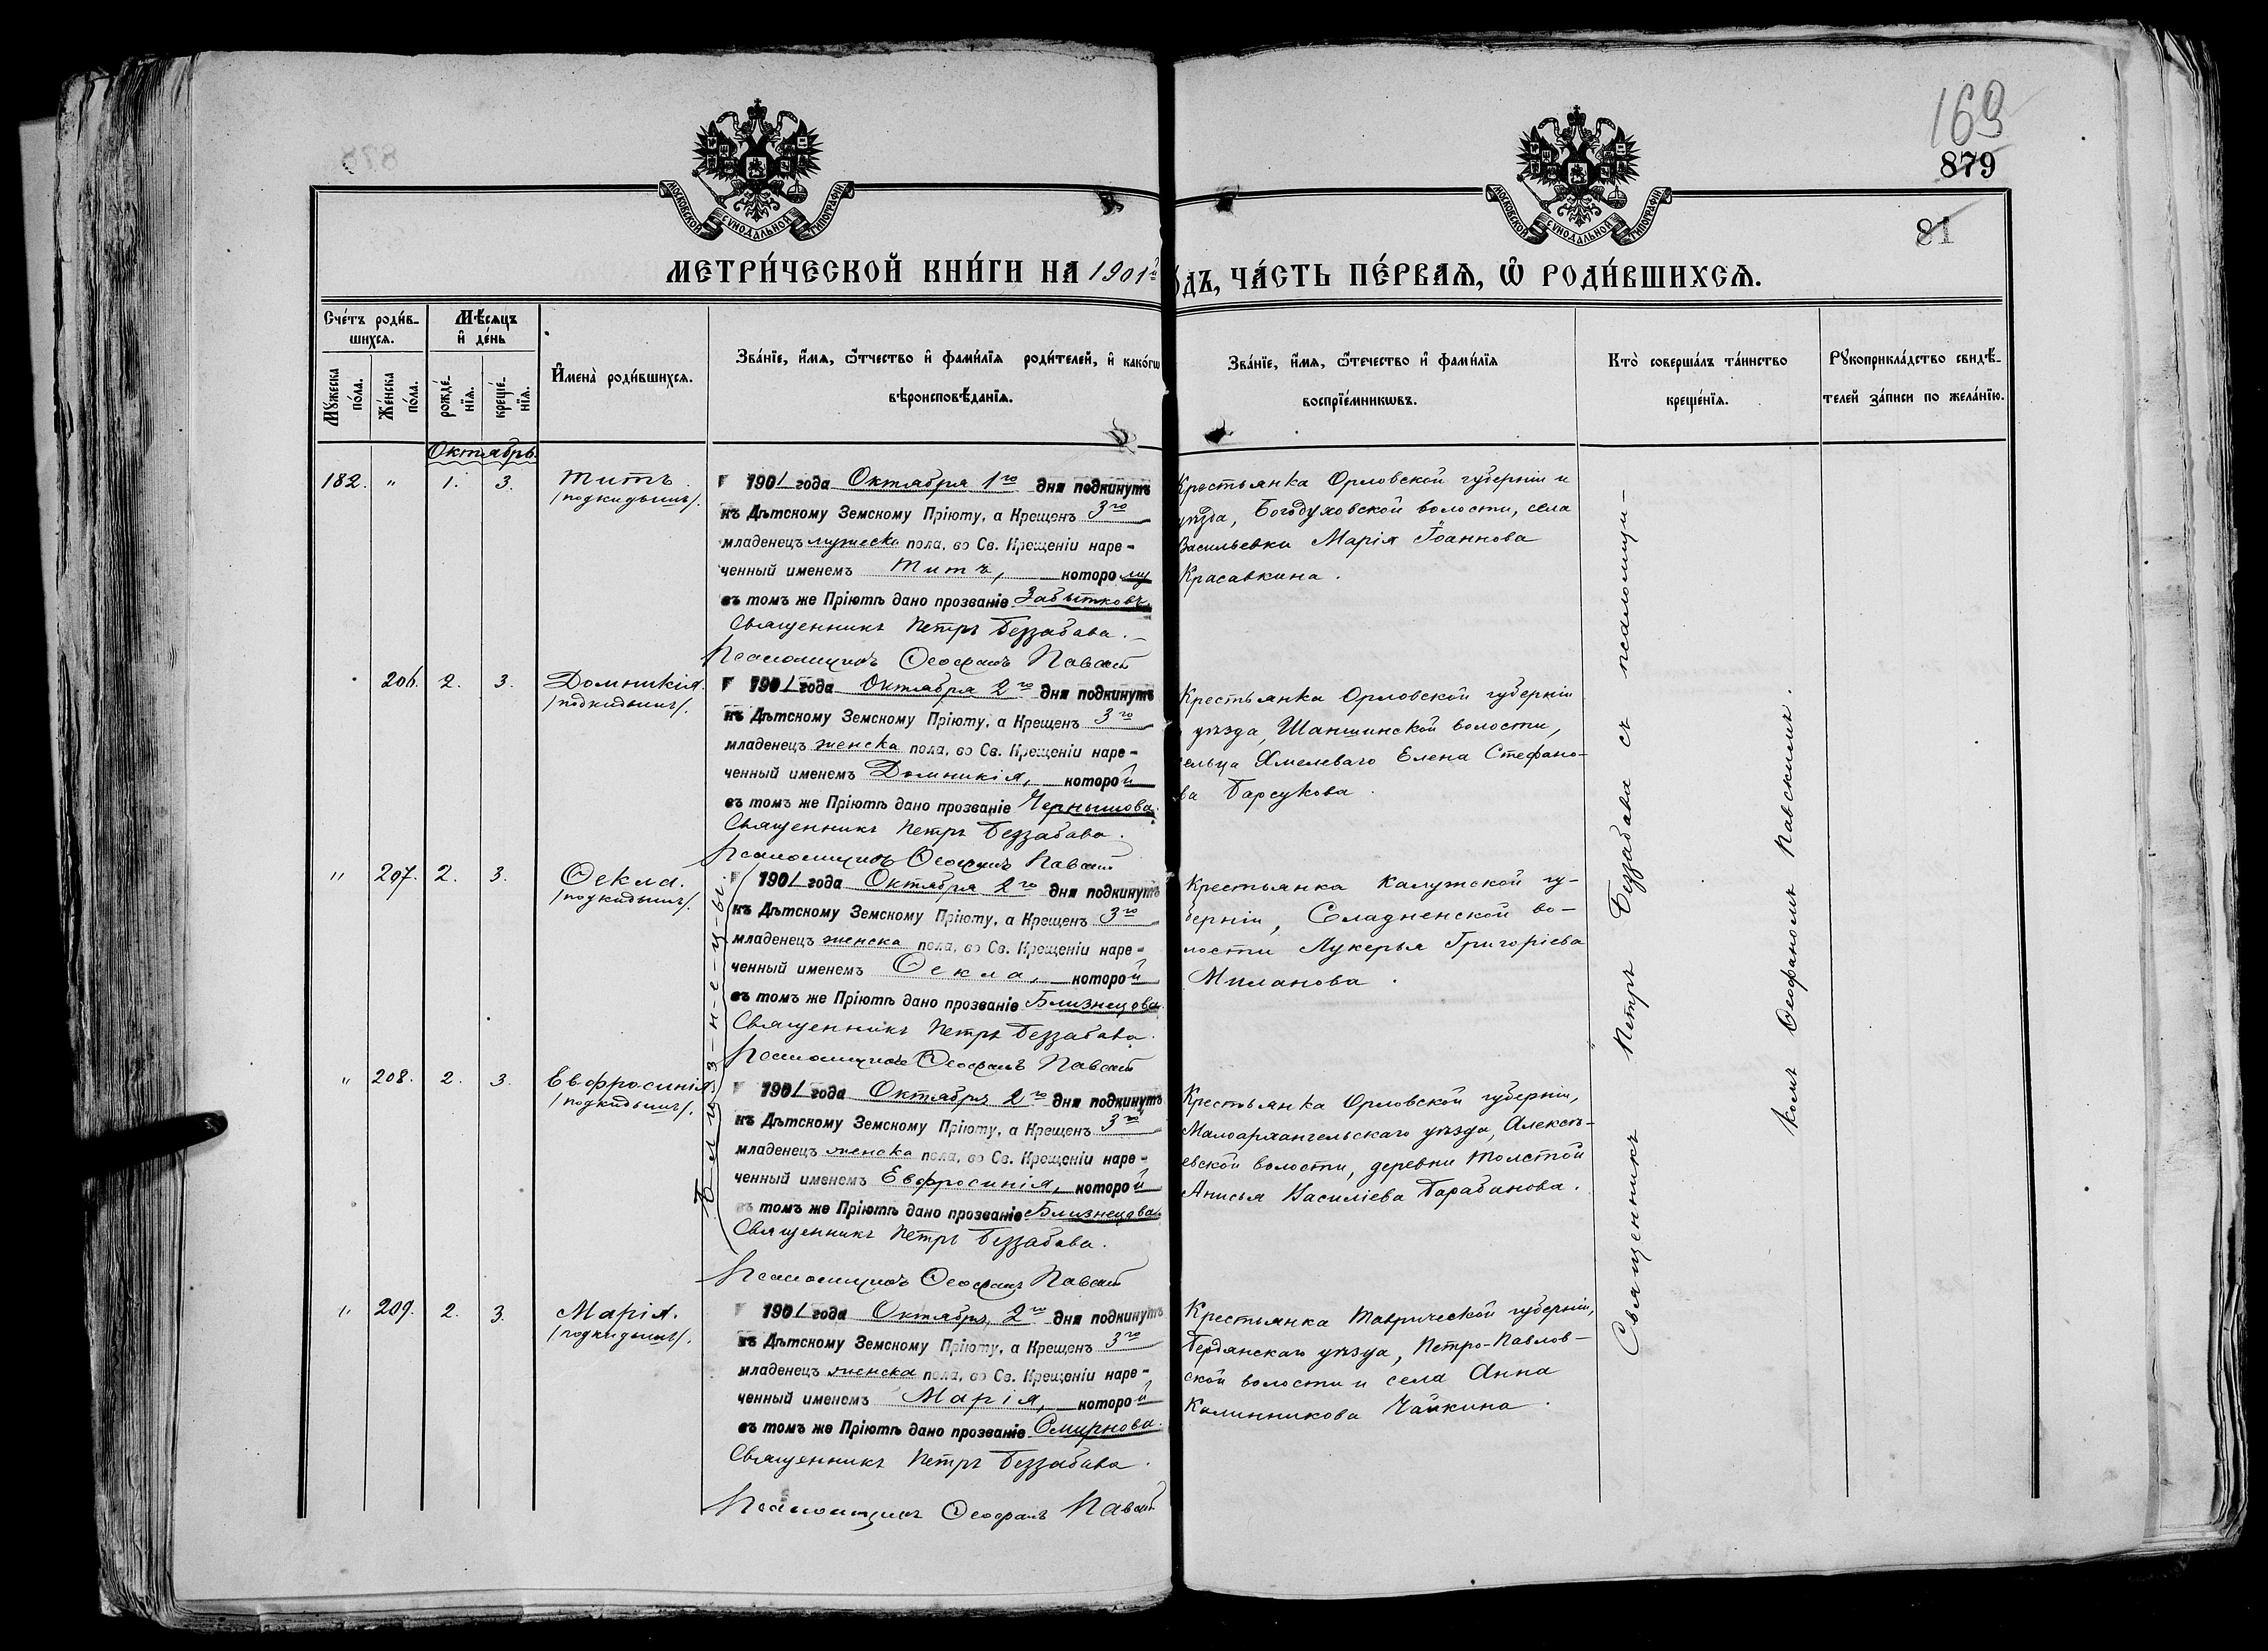 169
879
81
МОСКОВСКОЙ СѴНОДАЛЬНОЙ ТИПОГРАФІИ
МОСКОВСКОЙ СѴНОДАЛЬНОЙ ТИПОГРАФІИ
МЕТРИ́ЧЕСКОЙ КНИ́ГИ НА 1901й
ДЪ, ЧА́СТЬ ПЕ́РВАѦ, Ѽ РОДИ́ВШИХСѦ.
Сче́тъ роди́в-
шихсѧ.
Мѣ́сѧцъ
и҆ де́нь
Мꙋ́жеска
по́ла.
Же́нска
по́ла.
рожде́-
нїѧ.
креще́-
нїѧ.
И҆мена̀ роди́вшихсѧ.
Зва́нїе, и҆́мѧ, ѻ҆́тчество и҆ фами́лїѧ роди́телей, и҆ како́гѡ
вѣроисповѣ́данїѧ.
Зва́нїе, и҆́мѧ, ѻ҆те́чество и҆ фами́лїѧ
воспрїе́мникѡвъ.
Кто̀ соверша́лъ та́инство
креще́нїѧ.
Рꙋкоприкла́дство свидѣ́-
телей за́писи по жела́нїю.
Октябрь.
182. " 1. 3. Титъ.
/подкидышъ/.
1901 года Октября 1го дня подкинутъ
къ Дѣтскому Земскому Пріюту, а Крещенъ 3го
младенецъ мужеска пола, во Св. Крещеніи наре-
ченный именемъ Титъ, которому
въ томъ же Пріютѣ дано прозваніе Забытковъ.
Священникъ Петръ Беззабава.
Псаломщикъ Ѳеофанъ Павскій
Крестьянка Орловской губерніи и
уѣзда, Богодуховской волости, села
Васильевки Марія Іоаннова
Красавкина.
206. 2. 3. Домникія.
/подкидышъ/.
1901 года Октября 2го дня подкинутъ
къ Дѣтскому Земскому Пріюту, а Крещенъ 3го
младенецъ женска пола, во Св. Крещеніи наре-
ченный именемъ Домникія, которой
въ томъ же Пріютѣ дано прозваніе Чернышова.
Священникъ Петръ Беззабава.
Псаломщикъ Ѳеофанъ Павскій
Крестьянка Орловской губерніи
уѣзда, Шаншинской волости,
сельца Хмелеваго Елена Стефано-
ва Барсукова.
" 207. 2. 3. Ѳекла.
/подкидышъ/.
Б-л-и-з-н-е-ц-ы.
1901 года Октября 2го дня подкинутъ
къ Дѣтскому Земскому Пріюту, а Крещенъ 3го
младенецъ женска пола, во Св. Крещеніи наре-
ченный именемъ Ѳекла, которой
въ томъ же Пріютѣ дано прозваніе Близнецова.
Священникъ Петръ Беззабава.
Псаломщикъ Ѳеофанъ Павскій
Крестьянка Калужской гу-
берніи, Сладненской во-
лости Лукерья Григоріева
Миланова.
" 208. 2. 3. Евфросинія
/подкидышъ/.
1901 года Октября 2го дня подкинутъ
къ Дѣтскому Земскому Пріюту, а Крещенъ 3го
младенецъ женска пола, во Св. Крещеніи наре-
ченный именемъ Евфросинія, которой
въ томъ же Пріютѣ дано прозваніе Близнецова
Священникъ Петръ Беззабава.
Псаломщикъ Ѳеофанъ Павскій
Крестьянка Орловской губерніи,
Малоархангельскаго уѣзда, Алексѣ-
евской волости, деревни Толстой
Анисья Василіева Барабанова.
" 209. 2. 3. Марія.
/подкидышъ/.
1901 года Октября 2го дня подкинутъ
къ Дѣтскому Земскому Пріюту, а Крещенъ 3го
младенецъ женска пола, во Св. Крещеніи наре-
ченный именемъ Марія, которой
въ томъ же Пріютѣ дано прозваніе Смирнова.
Священникъ Петръ Беззабава.
Псаломщикъ Ѳеофанъ Павскій
Крестьянка Таврической губерніи,
Бердянскаго уѣзда, Петро-Павлов-
ской волости и села Анна
Калинникова Чайкина.
Священникъ Петръ Беззабава съ псаломщи-
комъ Ѳеофаномъ Павскимъ.